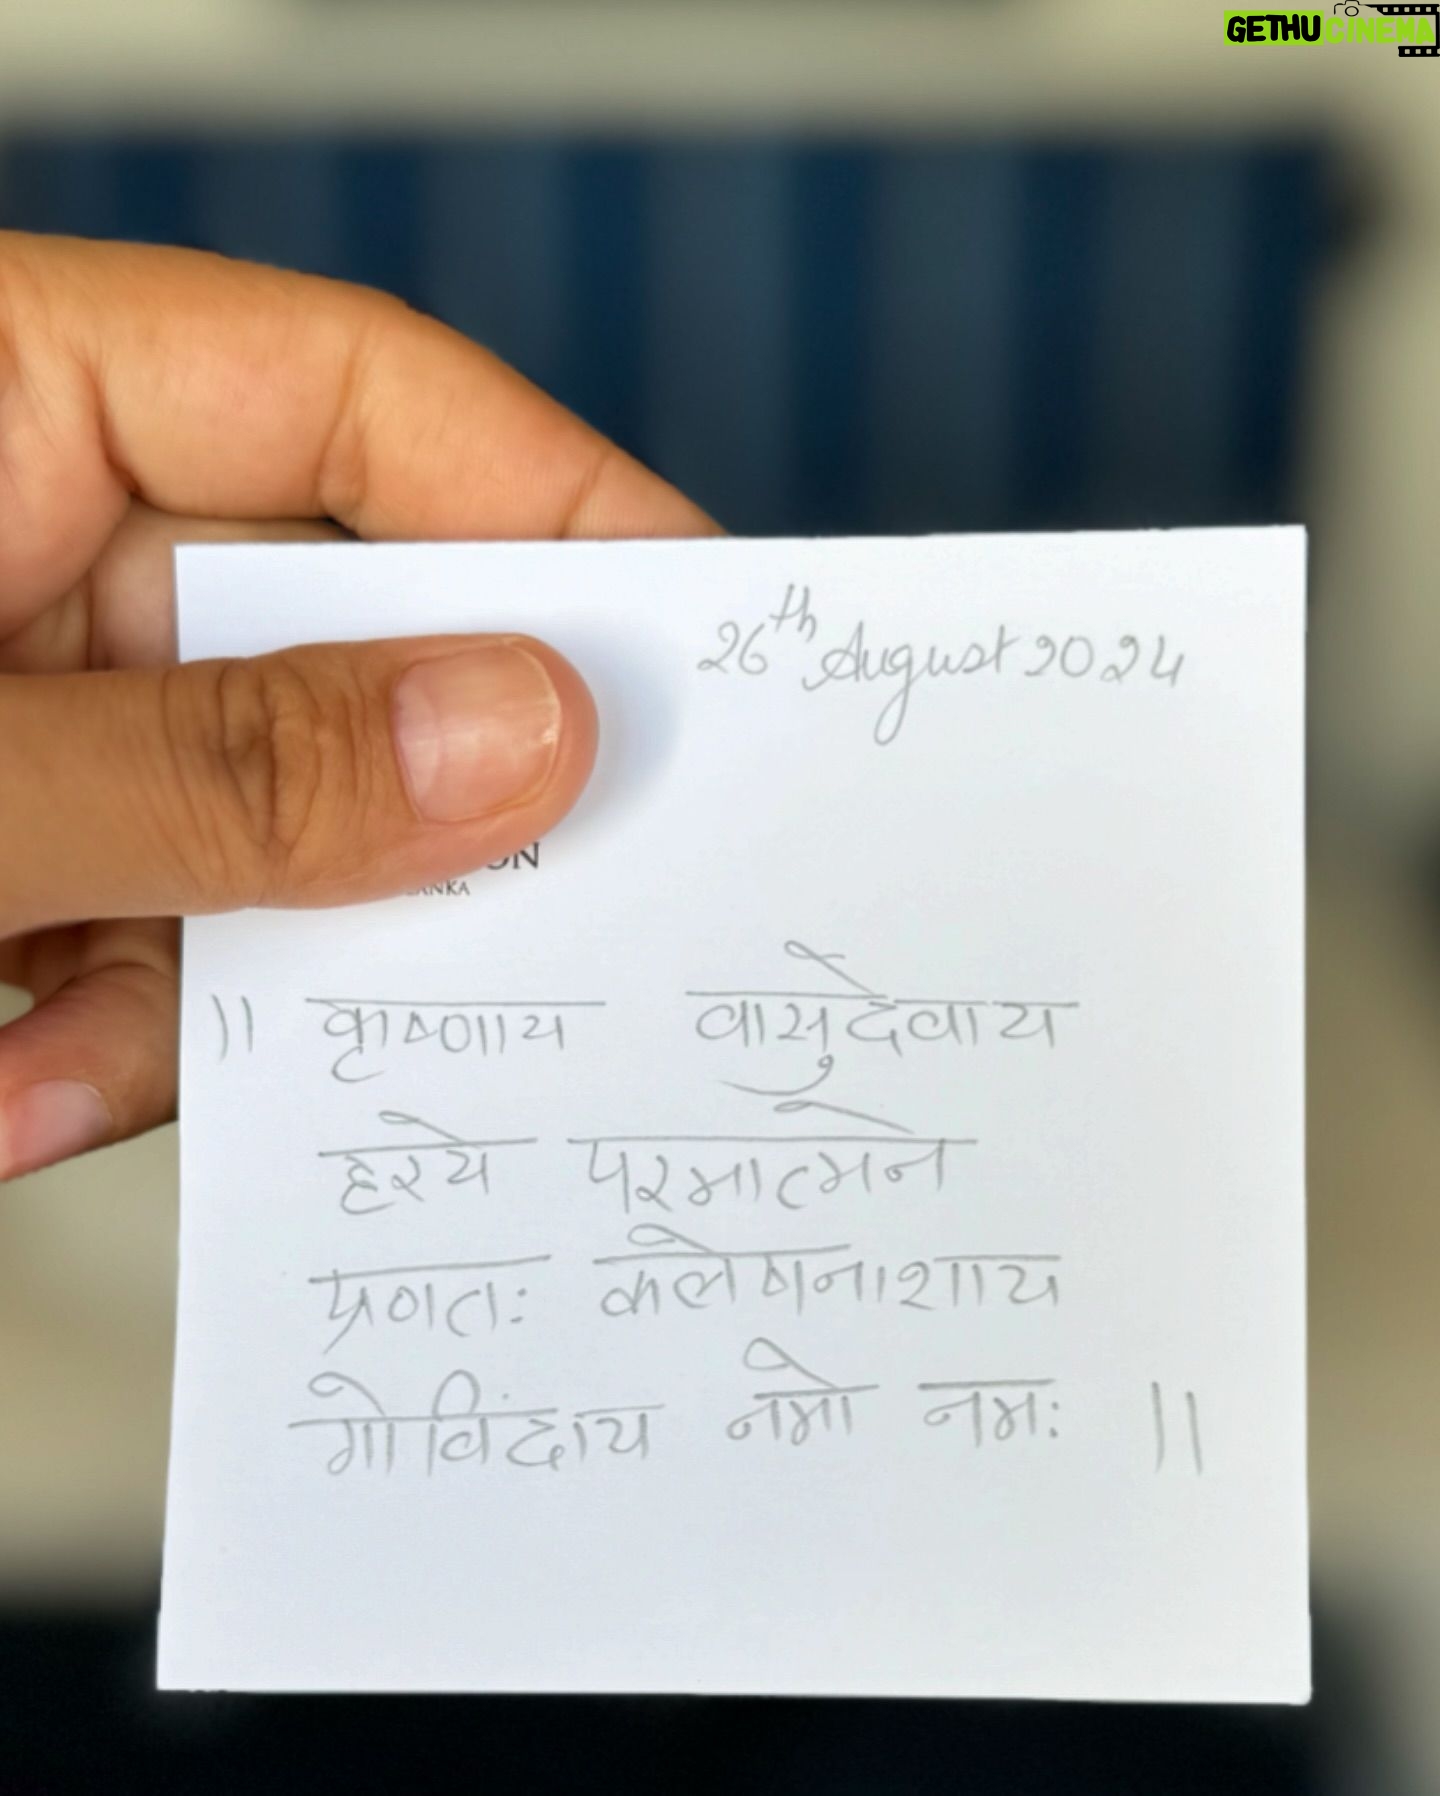 GETHU CINEMA
26th August 2024
ON
ANKA
|| कृष्णाय वासुदेवाय
हरये परमात्मने
प्रणतः कलेषनाशाय
गोविंदाय नमो नमः ||